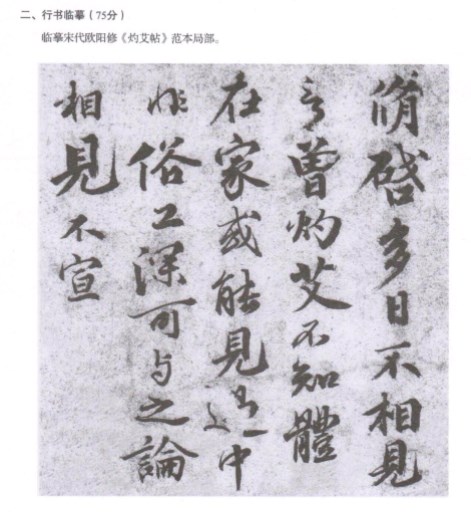 二、行书临摹（75分）
临摹宋代欧阳修《灼艾帖》范本局部。
脩啓多日不相見
言曾灼艾不知體
在家或能見過中
非俗工深可与之論
相見不宣